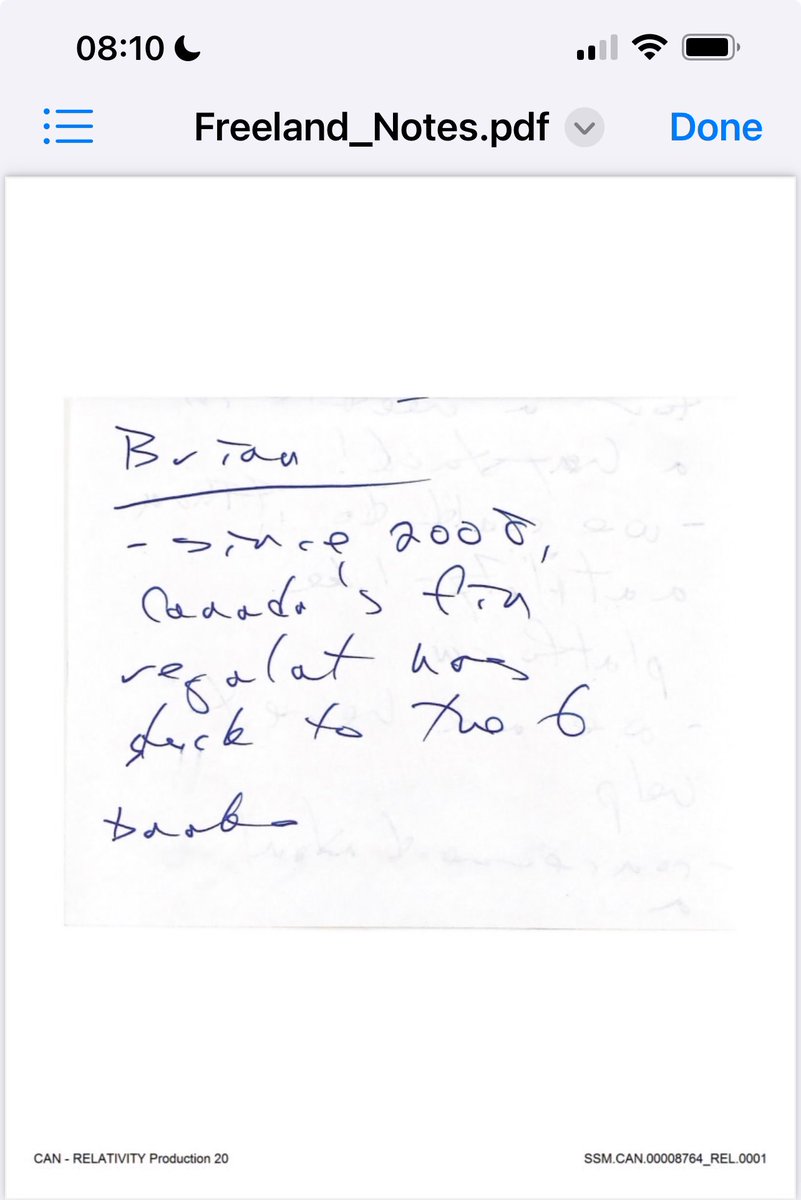 08:10
Freeland_Notes.pdf
Done
Brian
- since 2008,
Canada's fin
regulat has
stuck to the 6
banks
CAN - RELATIVITY Production 20
SSM.CAN.00008764_REL.0001